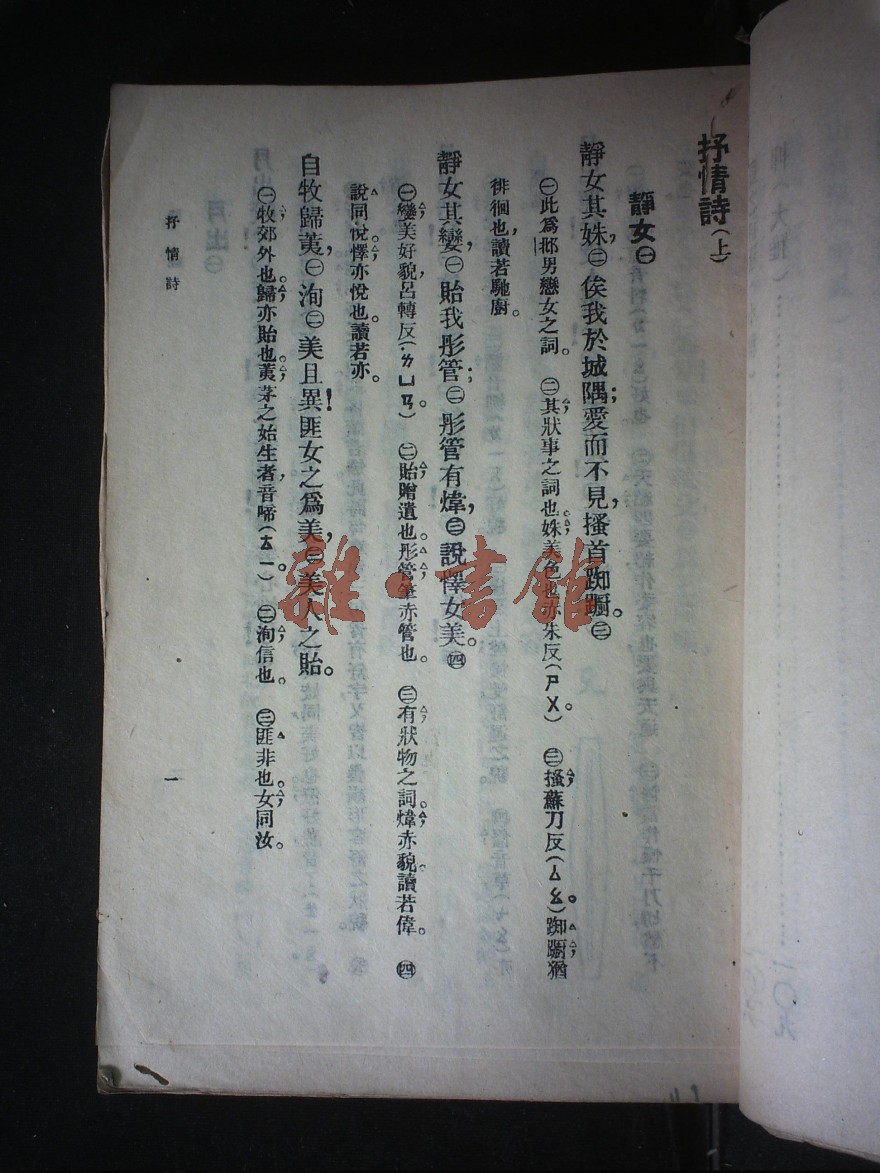 抒情詩(上)
靜女㊀
靜女其姝,㊁俟我於城隅;愛而不見,搔首踟躕。㊂
㊀此爲邶男戀女之詞。 ㊁其,狀事之詞也。姝,美色也,赤朱反(ㄕㄨ)。 ㊂搔,蘇刀反(ㄙㄠ)。踟躕,猶
徘徊也,讀若馳廚。
靜女其孌,㊀貽我彤管;㊁彤管有煒,㊂說懌女美。㊃
㊀孌,美好貌,呂轉反(·ㄌㄩㄢ)。 ㊁貽,贈遺也。彤管,筆赤管也。 ㊂有,狀物之詞。煒,赤貌。讀若偉。 ㊃
說同悅。懌亦悅也。讀若亦。
自牧歸荑,㊀洵㊁美且異!匪女之爲美,㊂美人之貽。
㊀牧,郊外也。歸,亦貽也。荑,茅之始生者,音啼(ㄊㄧ)。 ㊁洵,信也。 ㊂匪,非也。女同汝。
抒情詩
一
雜·書館